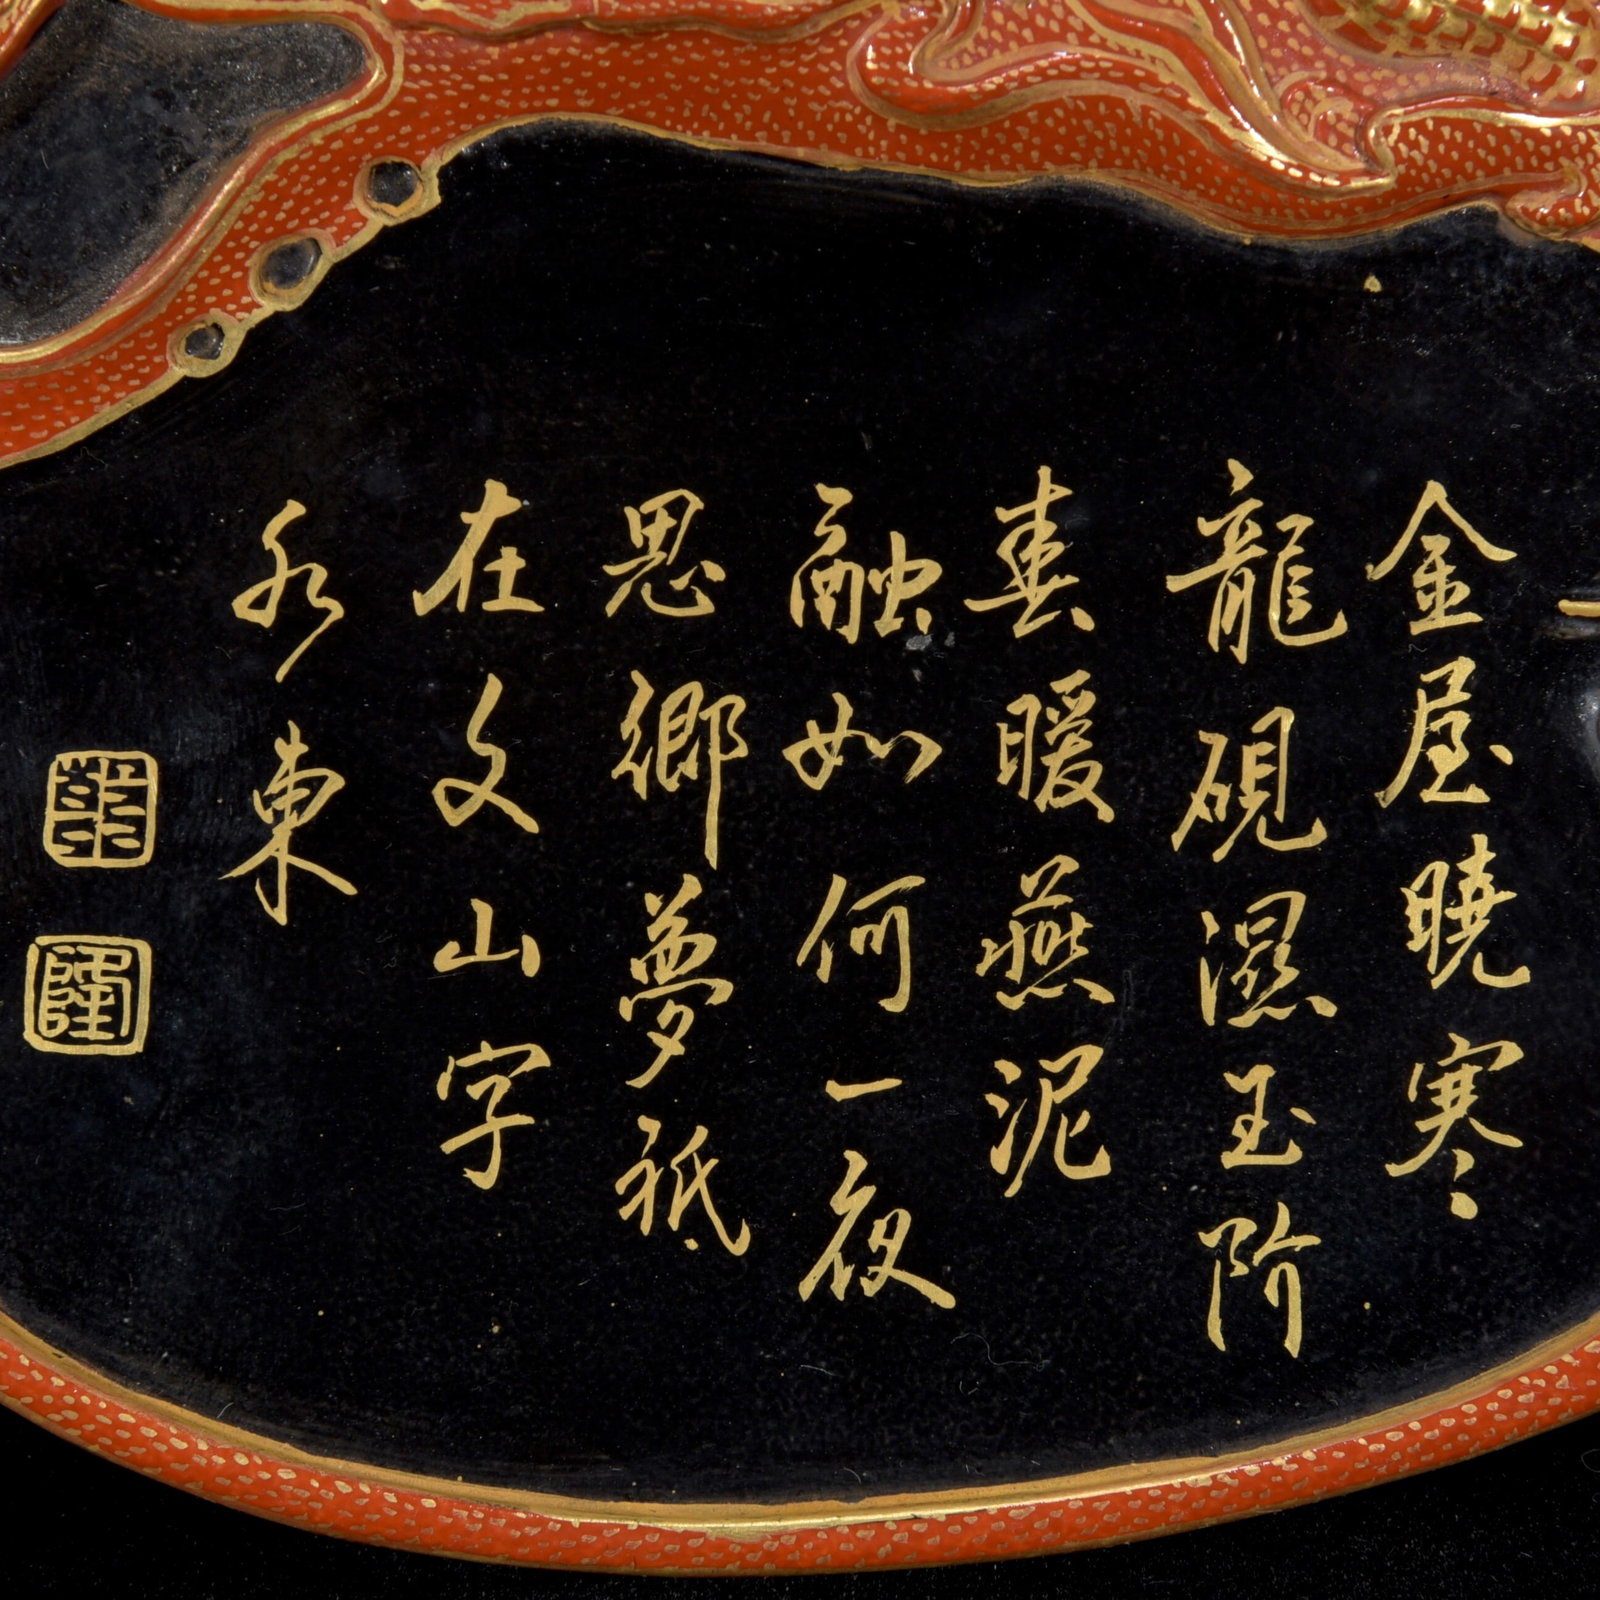 金屋曉寒
龍硯濕玉阶
春暖燕泥
融如何一夜
思鄉夢祇
在文山字
水東
隆